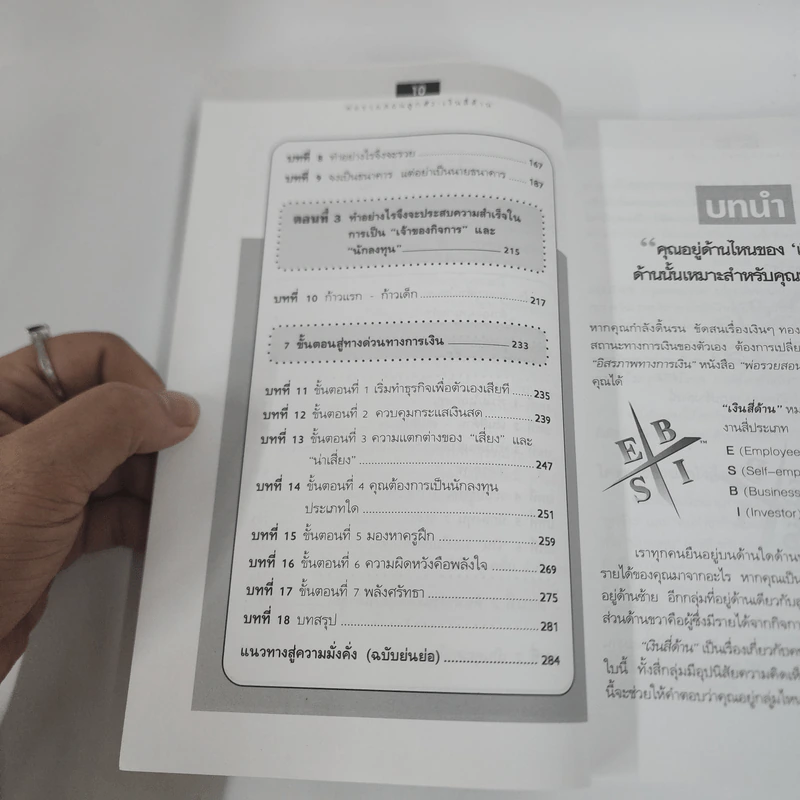 10
พ่อรวยสอนลูก#2:เงินสี่ด้าน
บทที่ 8 ทำอย่างไรจึงจะรวย 167
บทที่ 9 จงเป็นธนาคาร แต่อย่าเป็นนายธนาคาร 187
ตอนที่ 3 ทำอย่างไรจึงจะประสบความสำเร็จใน
การเป็น "เจ้าของกิจการ" และ
"นักลงทุน" 215
บทที่ 10 ก้าวแรก - ก้าวเด็ก 217
7 ขั้นตอนสู่ทางด่วนทางการเงิน 233
บทที่ 11 ขั้นตอนที่ 1 เริ่มทำธุรกิจเพื่อตัวเองเสียที 235
บทที่ 12 ขั้นตอนที่ 2 ควบคุมกระแสเงินสด 239
บทที่ 13 ขั้นตอนที่ 3 ความแตกต่างของ "เสี่ยง" และ
"น่าเสี่ยง" 247
บทที่ 14 ขั้นตอนที่ 4 คุณต้องการเป็นนักลงทุน
ประเภทใด 251
บทที่ 15 ขั้นตอนที่ 5 มองหาครูฝึก 259
บทที่ 16 ขั้นตอนที่ 6 ความผิดหวังคือพลังใจ 269
บทที่ 17 ขั้นตอนที่ 7 พลังศรัทธา 275
บทที่ 18 บทสรุป 281
แนวทางสู่ความมั่งคั่ง (ฉบับย่นย่อ) 284
บทนำ
"คุณอยู่ด้านไหนของ
ด้านนั้นเหมาะสำหรับคุณ
หากคุณกำลังดิ้นรน ขัดสนเรื่องเงินๆ ทอง
สถานะทางการเงินของตัวเอง ต้องการเปลี่ย
"อิสรภาพทางการเงิน" หนังสือ "พ่อรวยสอน
คุณได้
"เงินสี่ด้าน" หม
งานสี่ประเภท
E B
S I
™
E (Employee
S (Self-emp
B (Business
I (Investor)
เราทุกคนยืนอยู่บนด้านใดด้าน
รายได้ของคุณมาจากอะไร หากคุณเป็น
อยู่ด้านซ้าย อีกกลุ่มที่อยู่ด้านเดียวกับ
ส่วนด้านขวาคือผู้ซึ่งมีรายได้จากกิจกา
"เงินสี่ด้าน" เป็นเรื่องเกี่ยวกับ
ใบนี้ ทั้งสี่กลุ่มมีอุปนิสัยความคิด
นี้จะช่วยให้คำตอบว่าคุณอยู่กลุ่มไหน